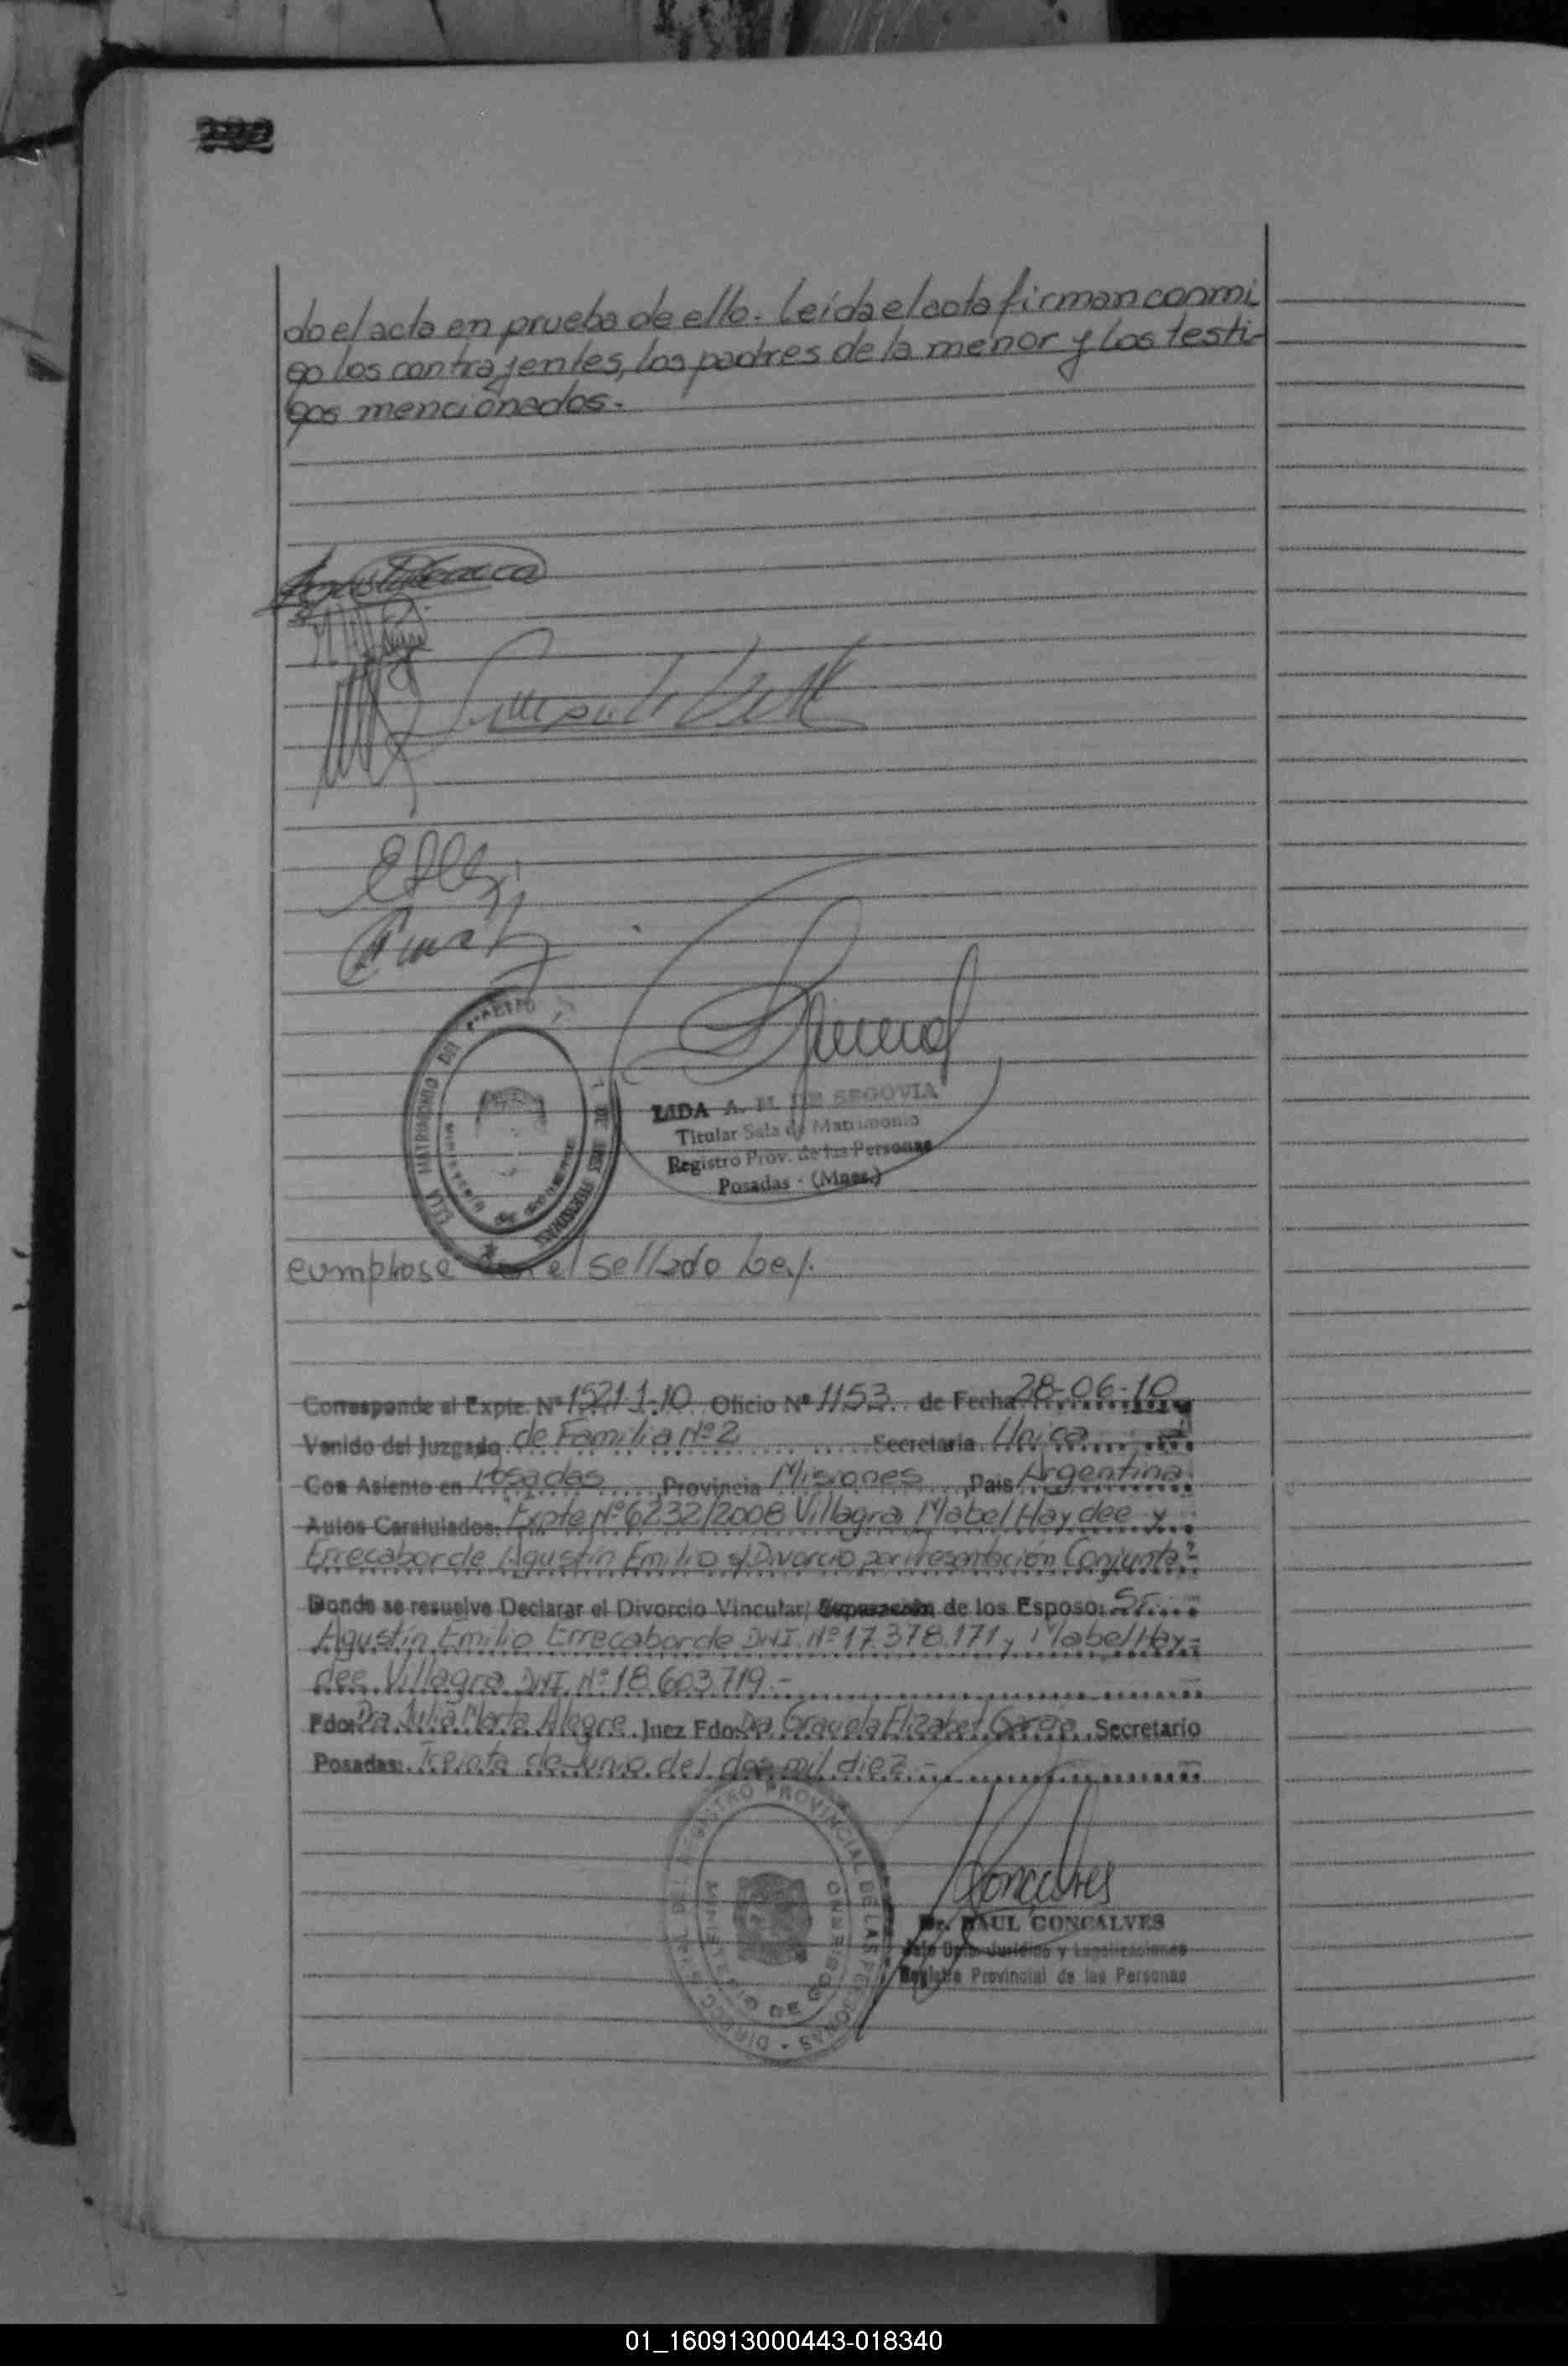 do el acta en prueba de ello. Leída el acta firman conmi
go los contrayentes, los padres de la menor y los testi-
gos mencionados.-
LIDA A. M. DE SEGOVIA
Titular Sala de Matrimonio
Registro Prov. de las Personas
Posadas - (Mnes.)
cumplase con el sellado Ley.
Corresponde al Expte. Nº 1521-1-10 Oficio Nº 1153 de Fecha 28-06-10
Venido del Juzgado de Familia Nº 2 Secretaria Unica
Con Asiento en Posadas, Provincia Misiones, Pais Argentina
Autos Caratulados: Expte Nº 6232/2008 Villagra Mabel Haydee y
Errecaborde Agustín Emilio s/Divorcio por Presentación Conjunta"
Donde se resuelve Declarar el Divorcio Vincular, Separación de los Esposo: Sr.
Agustín Emilio Errecaborde DNI. Nº 17.378.171 y Mabel Hay-
dee Villagra DNI. Nº 18.603.719.-
Fdo: Dra Julia Marta Alegre Juez Fdo: Dra Graciela Elizabet Secretario
Posadas: Treinta de Junio del dos mil diez.-
DIRECC. GRAL. DEL REGISTRO PROVINCIAL DE LAS PERSONAS
MINISTERIO DE GOBIERNO
Goncalves
Dr. RAUL GONCALVES
Jefe Dpto. Jurídico y Legalizaciones
Registro Provincial de las Personas
01_160913000443-018340